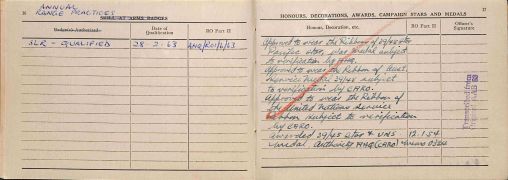 16
ANNUAL
RANGE PRACTICES
SKILL AT ARMS BADGES
Badge(s) Authorized
Date of Qualification
RO Part II
SLR - QUALIFIED 28-2-63
17
HONOURS, DECORATIONS, AWARDS, CAMPAIGN STARS AND MEDALS
Honour, Decoration, etc.
RO Part II
Officer's Signature
Approved to wear the Ribbon of 39/45 Star
Pacific Star, War Medal subject
to verification by AHQ.
Approved to wear the Ribbon of
Service Medal 39/45 subject
to verification by CARO.
Approved to wear the Ribbon of
the United Nations Service
Ribbon subject to verification
by CARO.
Awarded 39/45 Star & UNS 12.1.54
Medal. Authority AHQ (CARO)